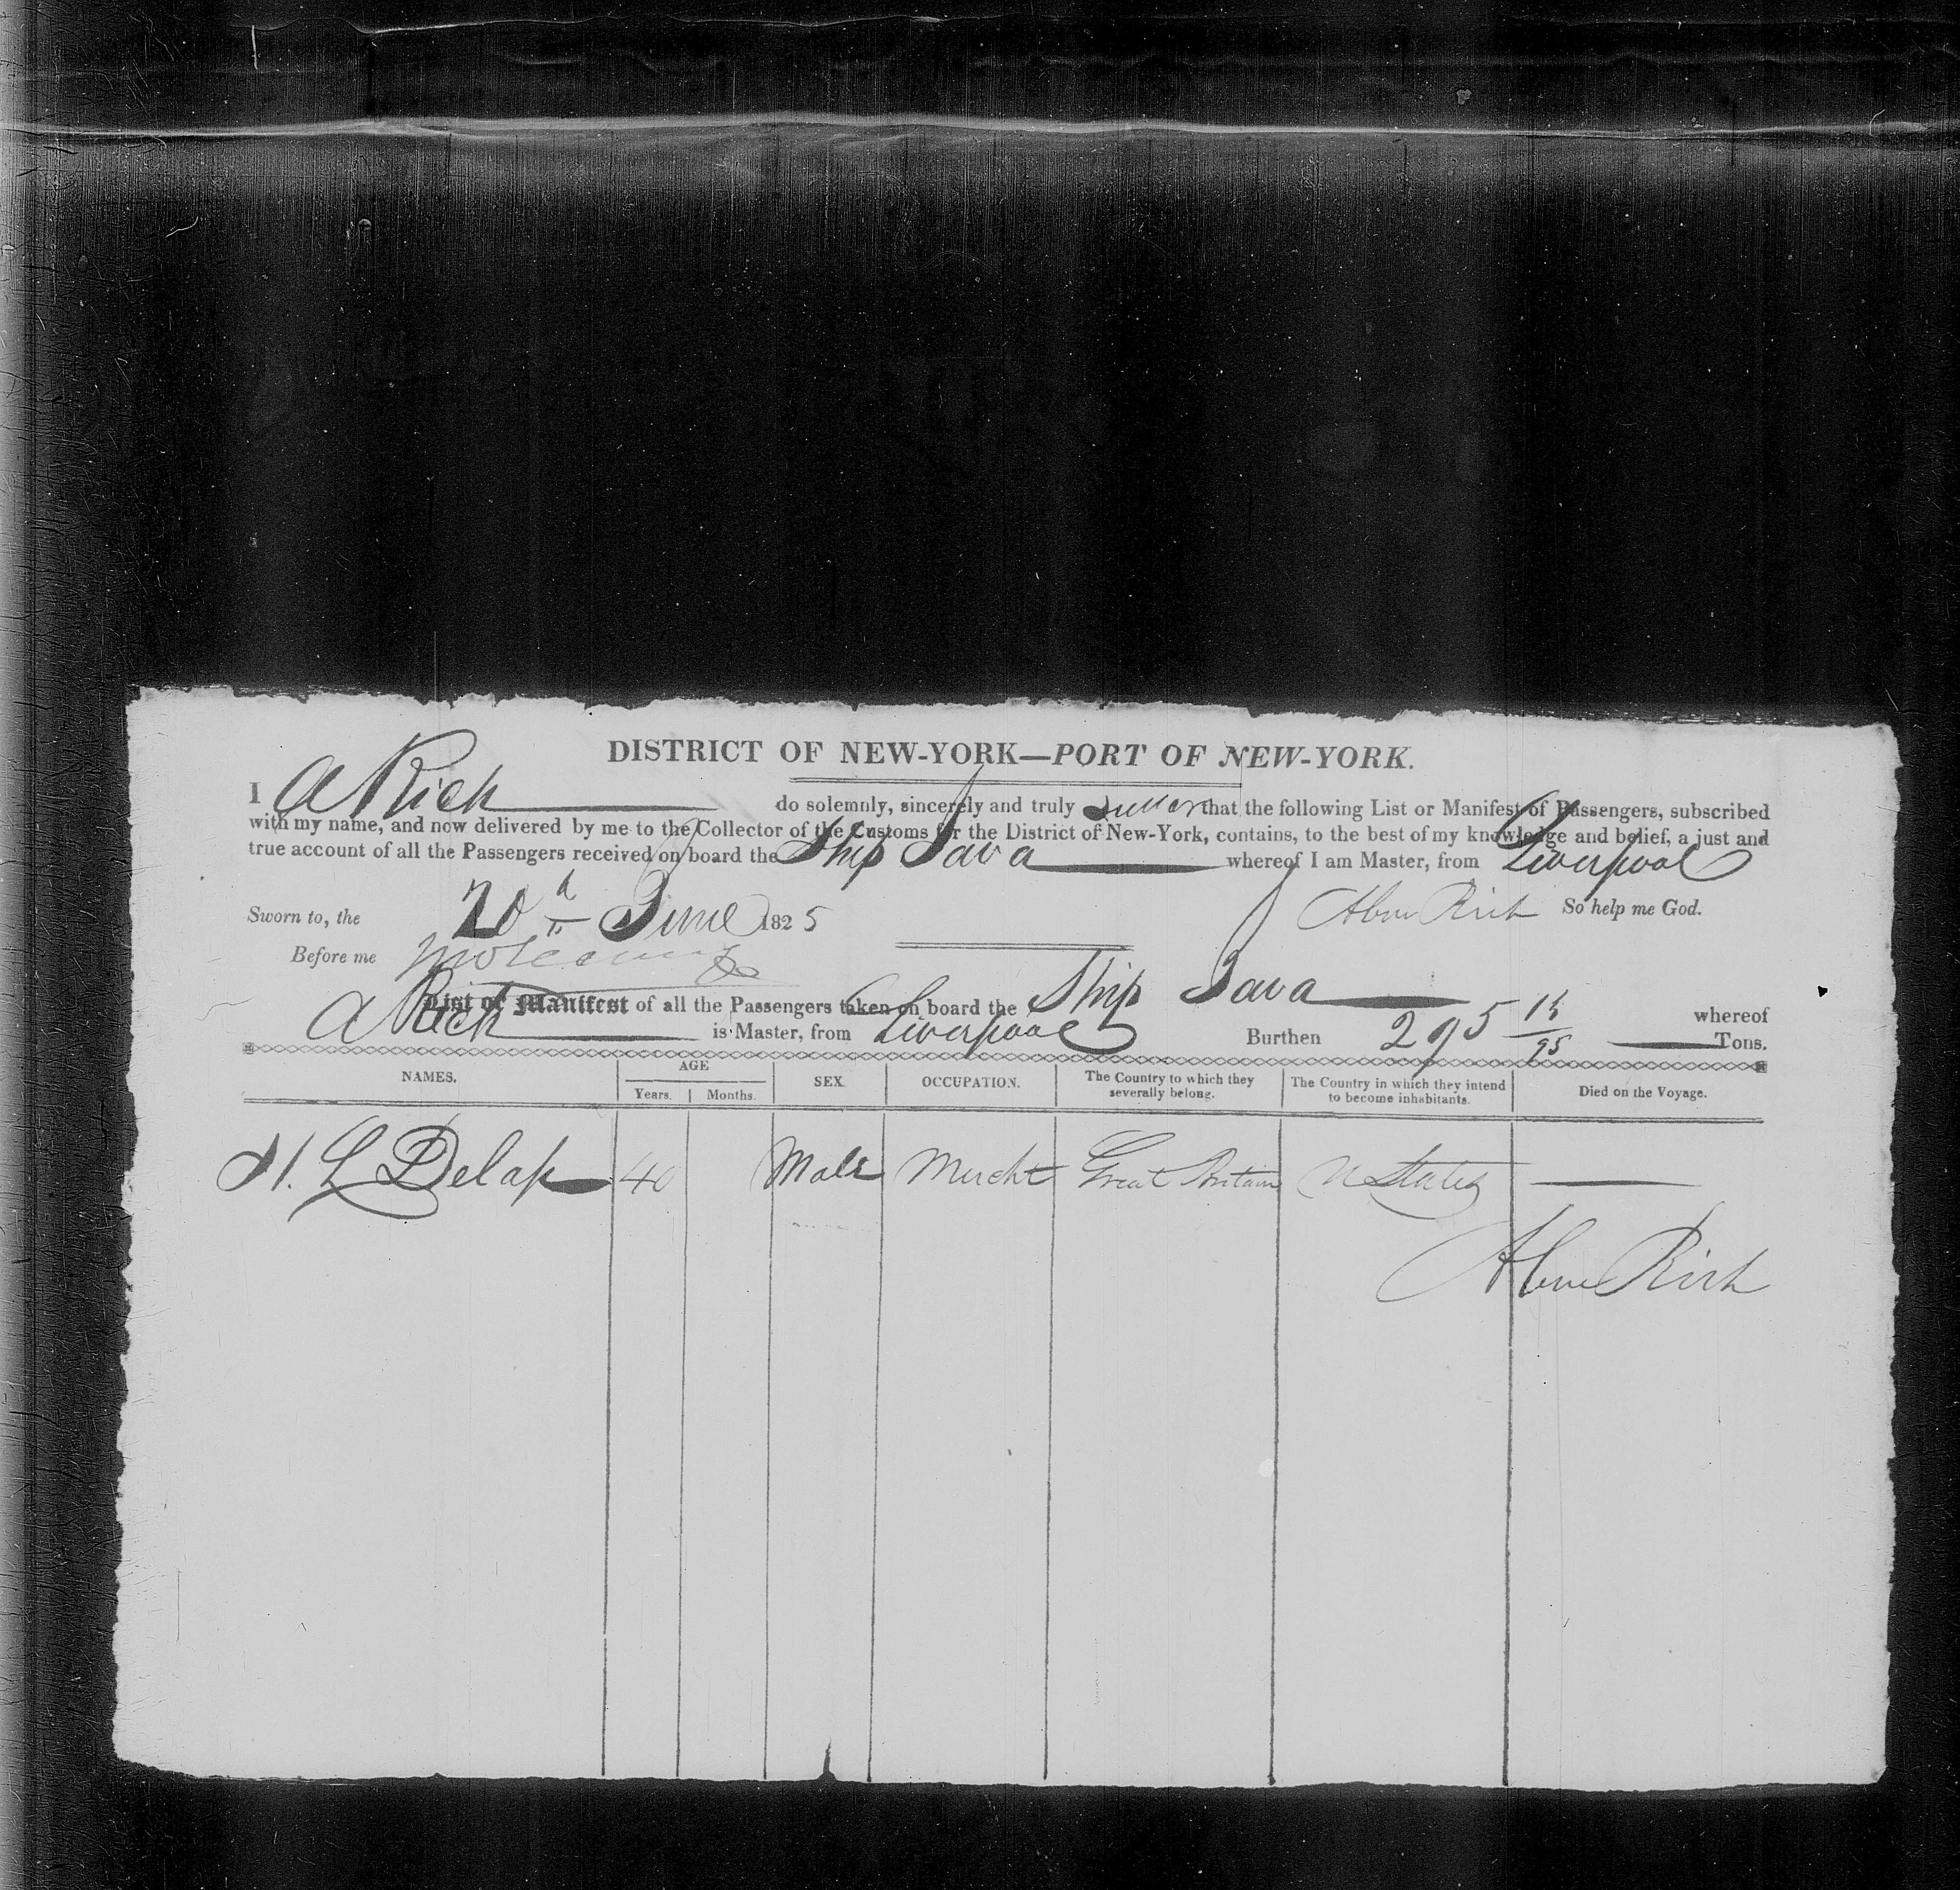 DISTRICT OF NEW-YORK—PORT OF NEW-YORK.
I A Rich do solemnly, sincerely and truly swear that the following List or Manifest of Passengers, subscribed
with my name, and now delivered by me to the Collector of the Customs for the District of New-York, contains, to the best of my knowledge and belief, a just and
true account of all the Passengers received on board the Ship Java whereof I am Master, from Liverpool
Sworn to, the 20th June 1825 Rich So help me God.
Before me
List or Manifest of all the Passengers taken on board the Ship Java whereof
A Rich is Master, from Liverpool Burthen 295 Tons.
NAMES. AGE SEX. OCCUPATION. The Country to which they severally belong. The Country in which they intend to become inhabitants. Died on the Voyage.
Years. Months.
H. L Delap 40 Male Mercht Great Britain U States
Rich